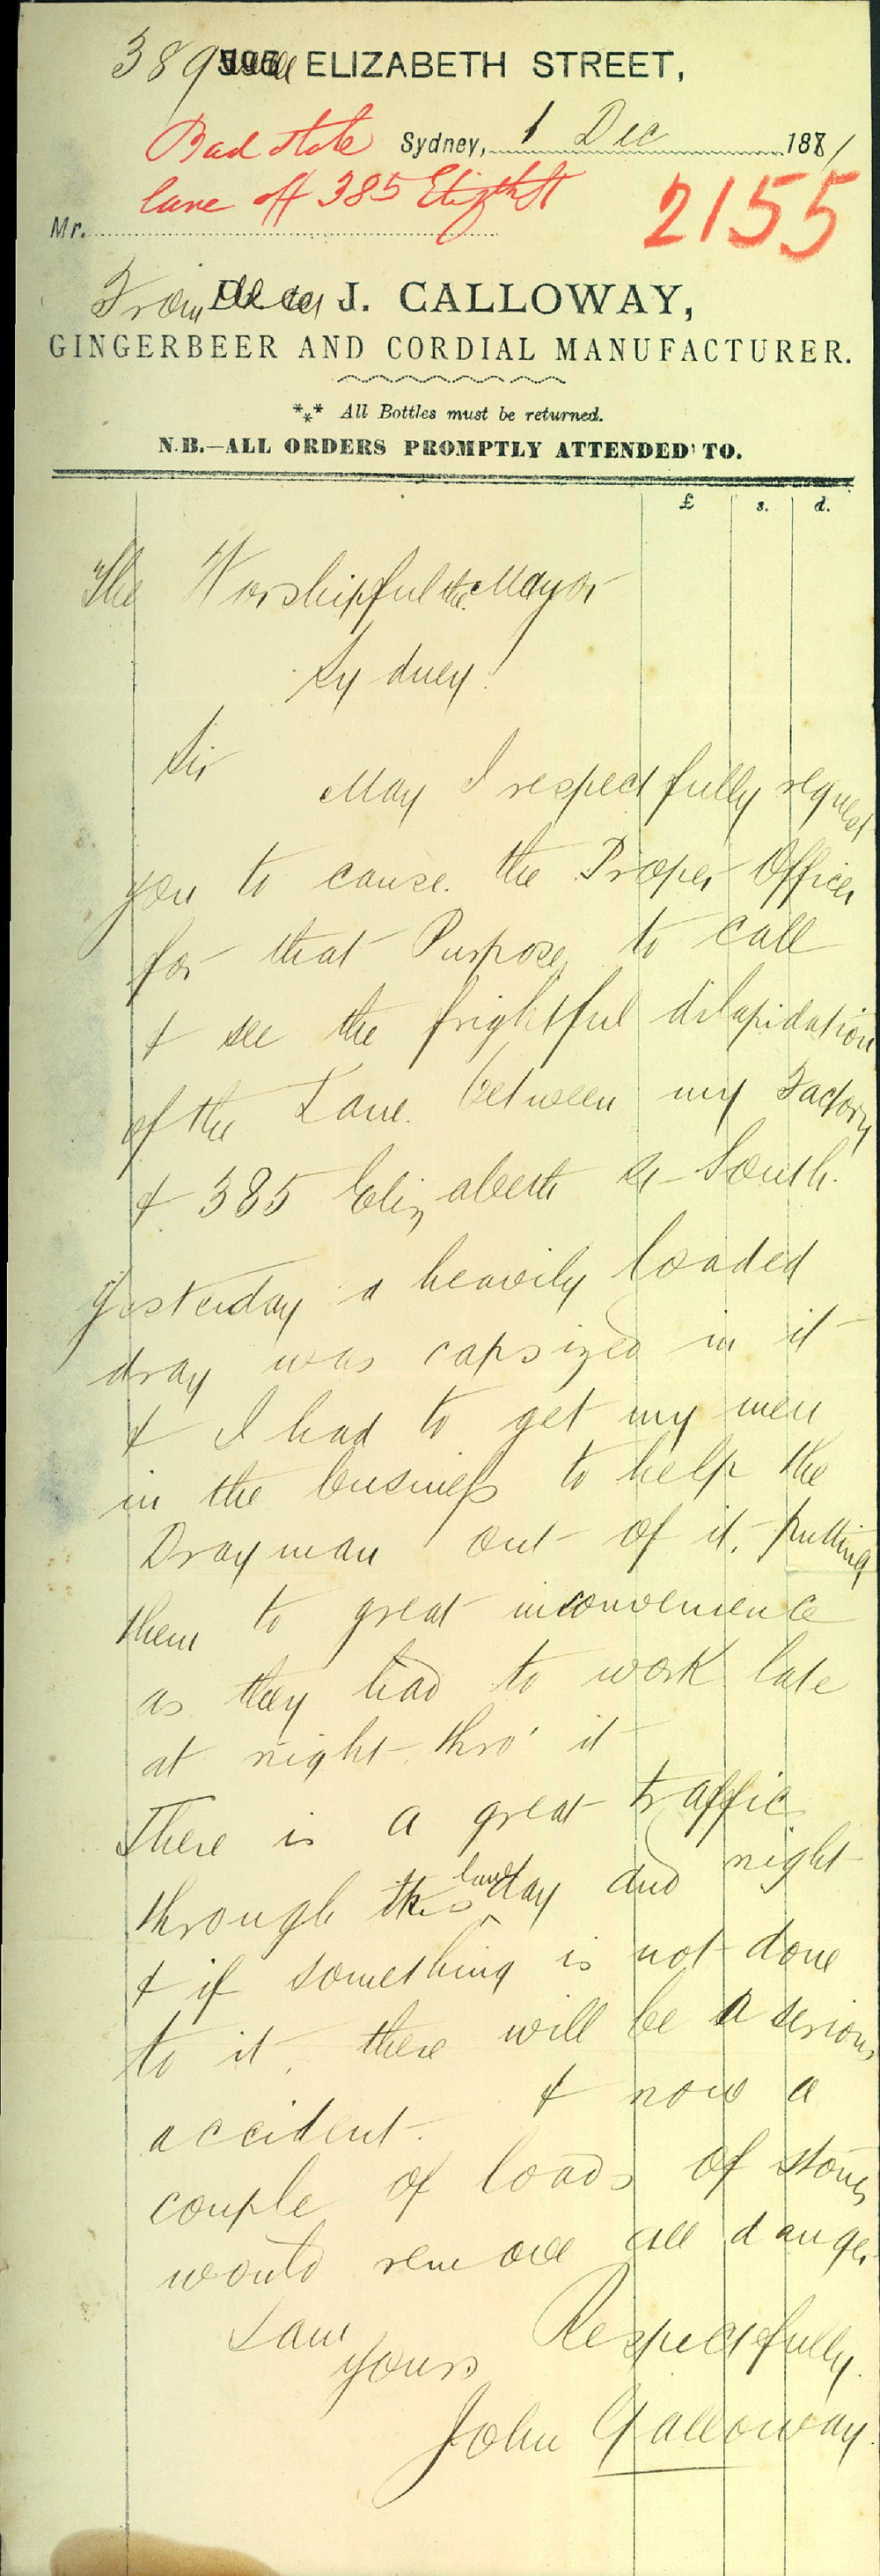 389 ELIZABETH STREET,
Bad state Sydney, 1 Dec 1881
lane off 385 Elizth St 2155
Mr.
From J. CALLOWAY,
GINGERBEER AND CORDIAL MANUFACTURER.
*** All Bottles must be returned.
N.B.—ALL ORDERS PROMPTLY ATTENDED TO.
£ s. d.
The Worshipful the Mayor
Sydney
Sir
May I respectfully request
you to cause the Proper Officer
for that Purpose to call
& see the frightful dilapidation
of the Lane between my Factory
& 385 Elizabeth St South.
Yesterday a heavily loaded
dray was capsized in it
& I had to get my men
in the business to help the
Drayman out of it, putting
them to great inconvenience
as they had to work late
at night thro' it
There is a great traffic
through this lane day and night
& if something is not done
to it, there will be a serious
accident. & now a
couple of loads of stones
would remove all danger
I am
yours Respectfully
John Galloway